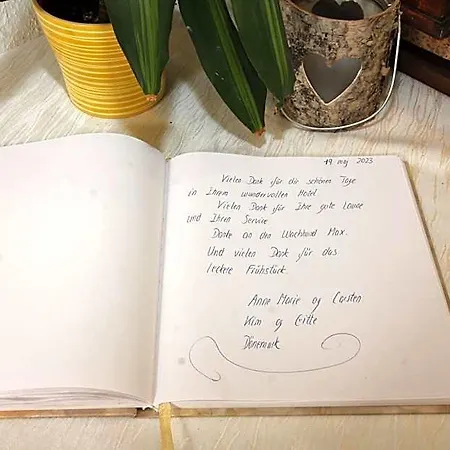 19 maj 2023
Vielen Dank für die schönen Tage
in Ihrem wundervollen Hotel.
Vielen Dank für Ihre gute Laune
und Ihren Service
Danke an den Wachhund Max.
Und vielen Dank für das
leckere Frühstück.
Anne Marie og Carsten
Kim og Gitte
Dänemark